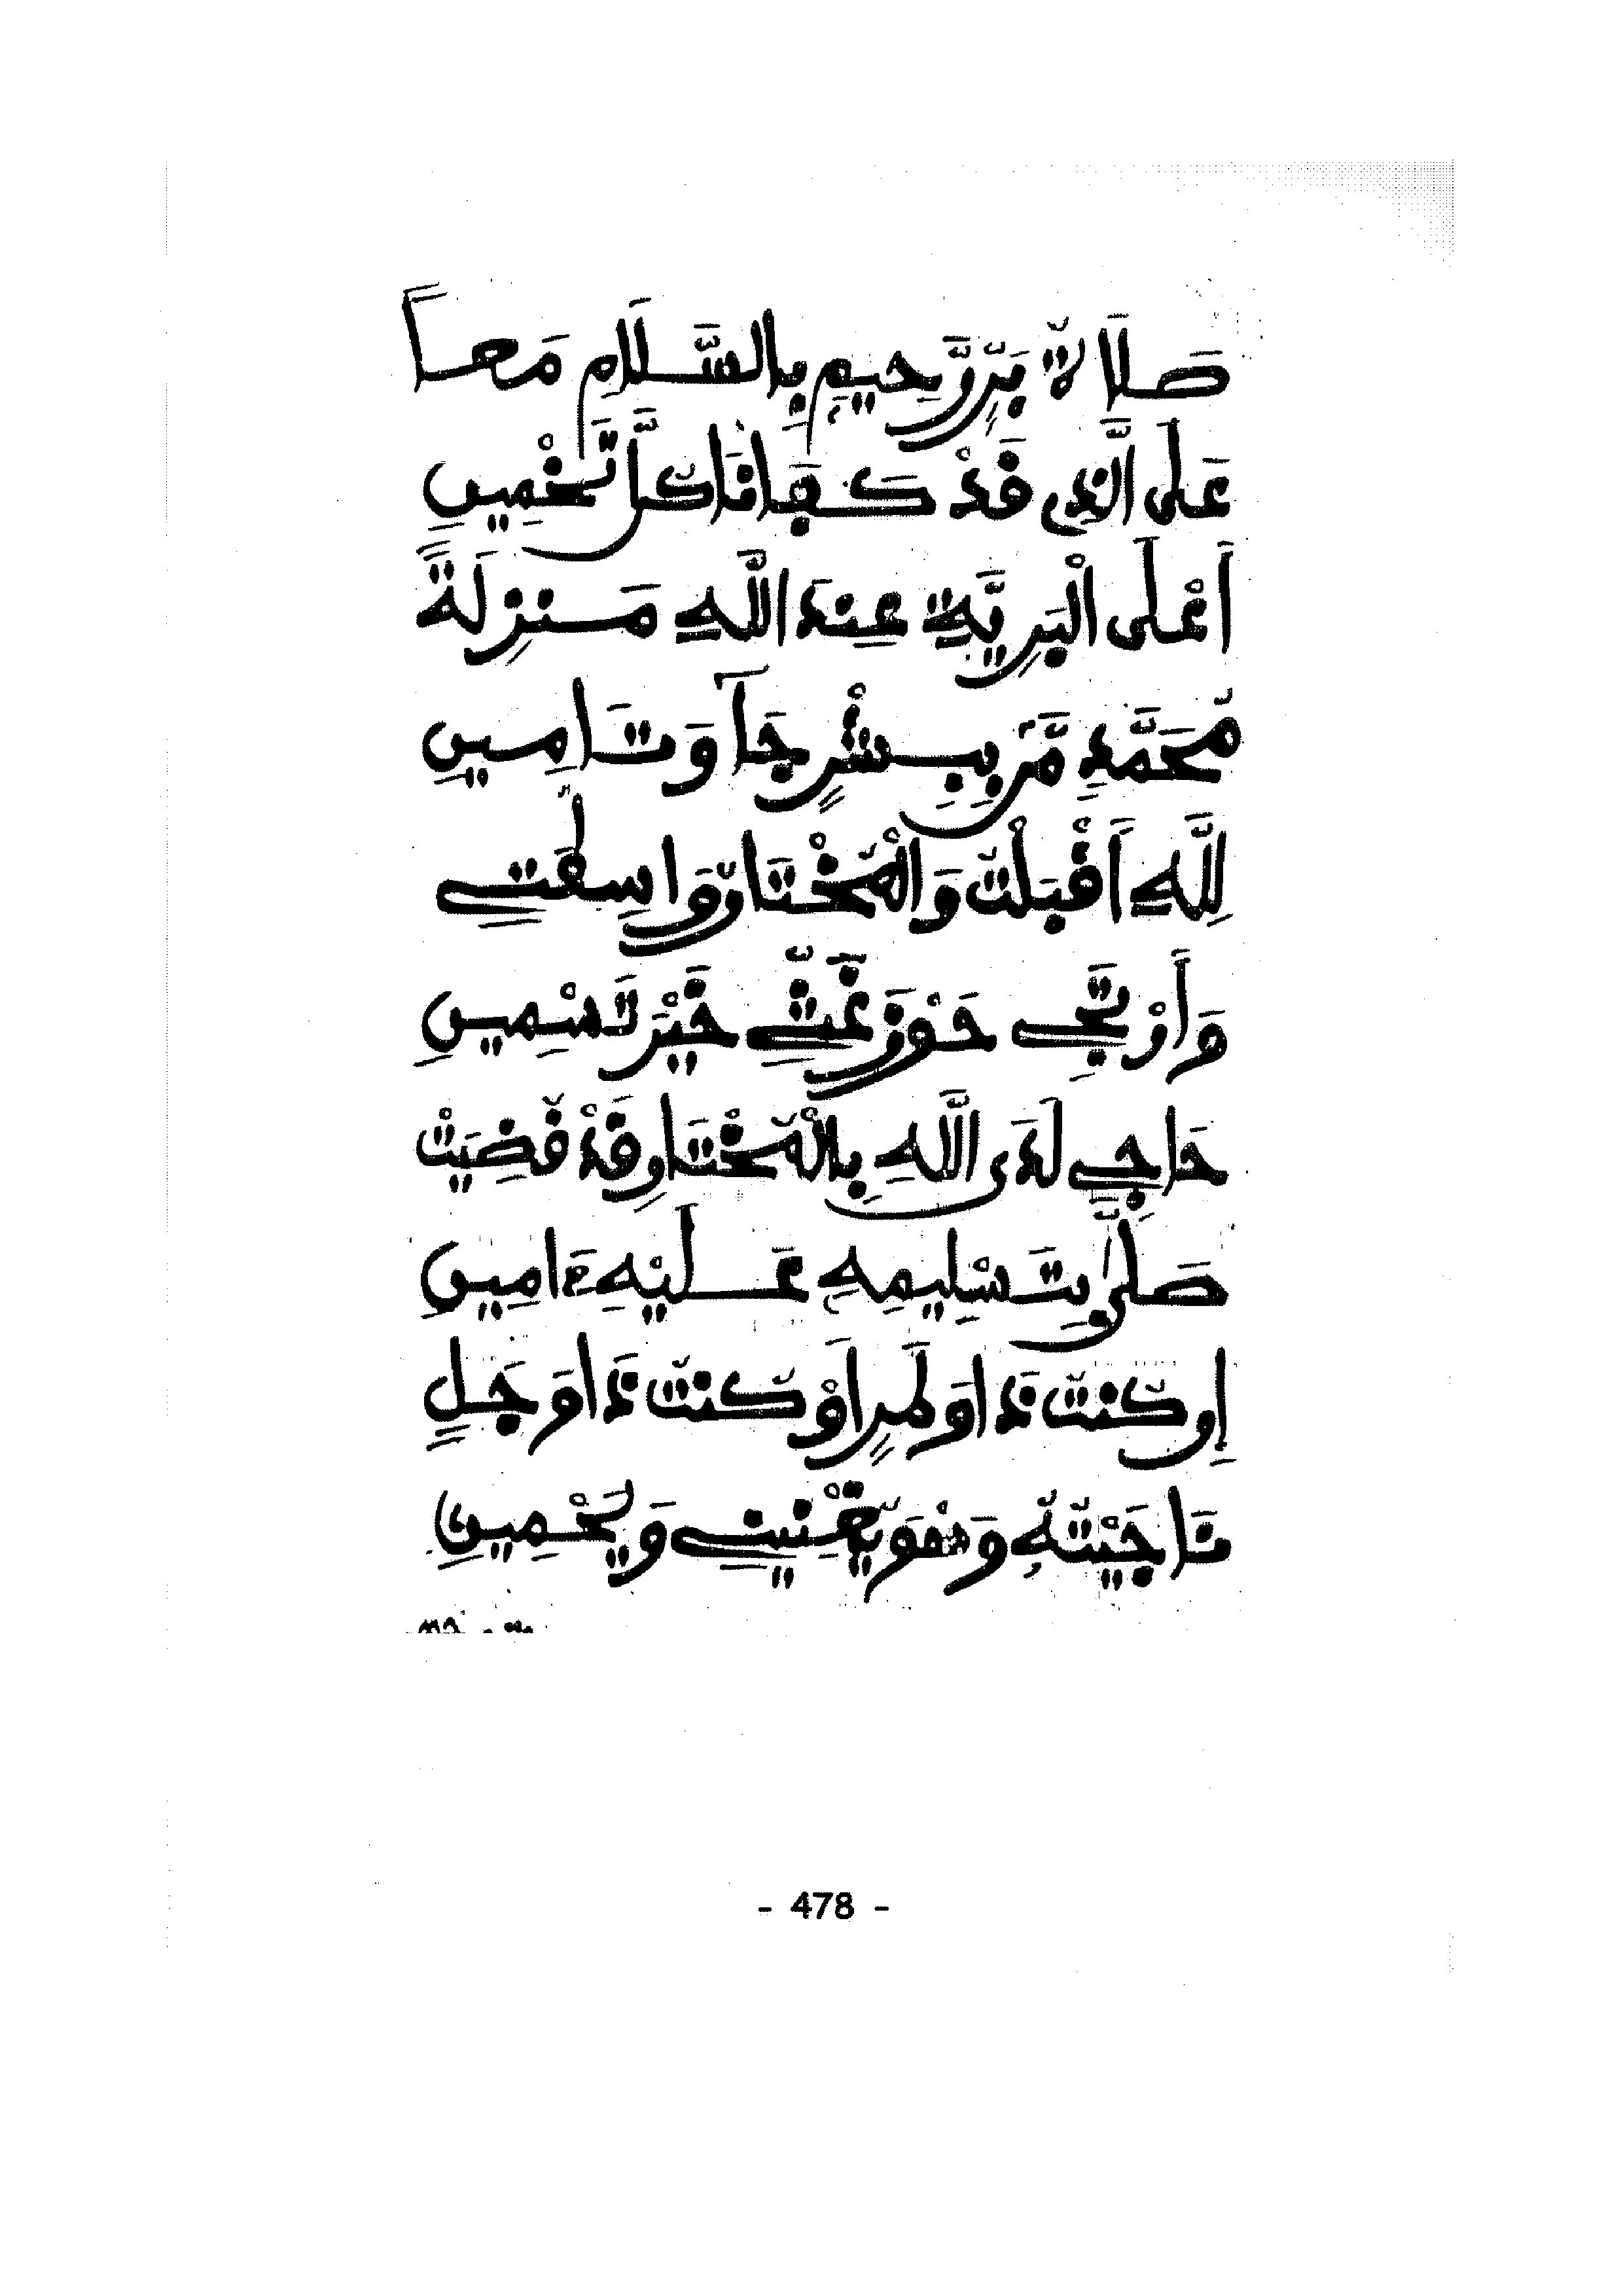 صَلَاةُ بَرٍّ رَّحِيمٍ بِالسَّلَامِ مَعاً
عَلَى الَّذِي قَدْ كَفَانَا كُلَّ تَخْمِينِ
أَعْلَى الْبَرِيَّةِ عِندَ اللَّهِ مَنزِلَةً
مُحَمَّدٍ مَّن بِبِشْرٍ جَا وَتَامِينِ
لِلَّهِ أَقْبَلْتُ وَالْمُخْتَارُ وَاسِطَتِي
وَأَرْتَجِي حَوْزَ خَيْرَ تَسْمِينِ
حَاجِي لَدَى اللَّهِ بِالْمُخْتَارِ قَدْ قُضِيَتْ
صَلَّى بِتَسْلِيمِهِ عَلَيْهِ ءَامِينِ
إِن كُنتُ ذَا وَلَهٍ أَوْ كُنتُ ذَا وَجَلٍ
نَاجَيْتُهُ وَهْوَ يُغْنِينِي وَيَحْمِينِ
- 478 -